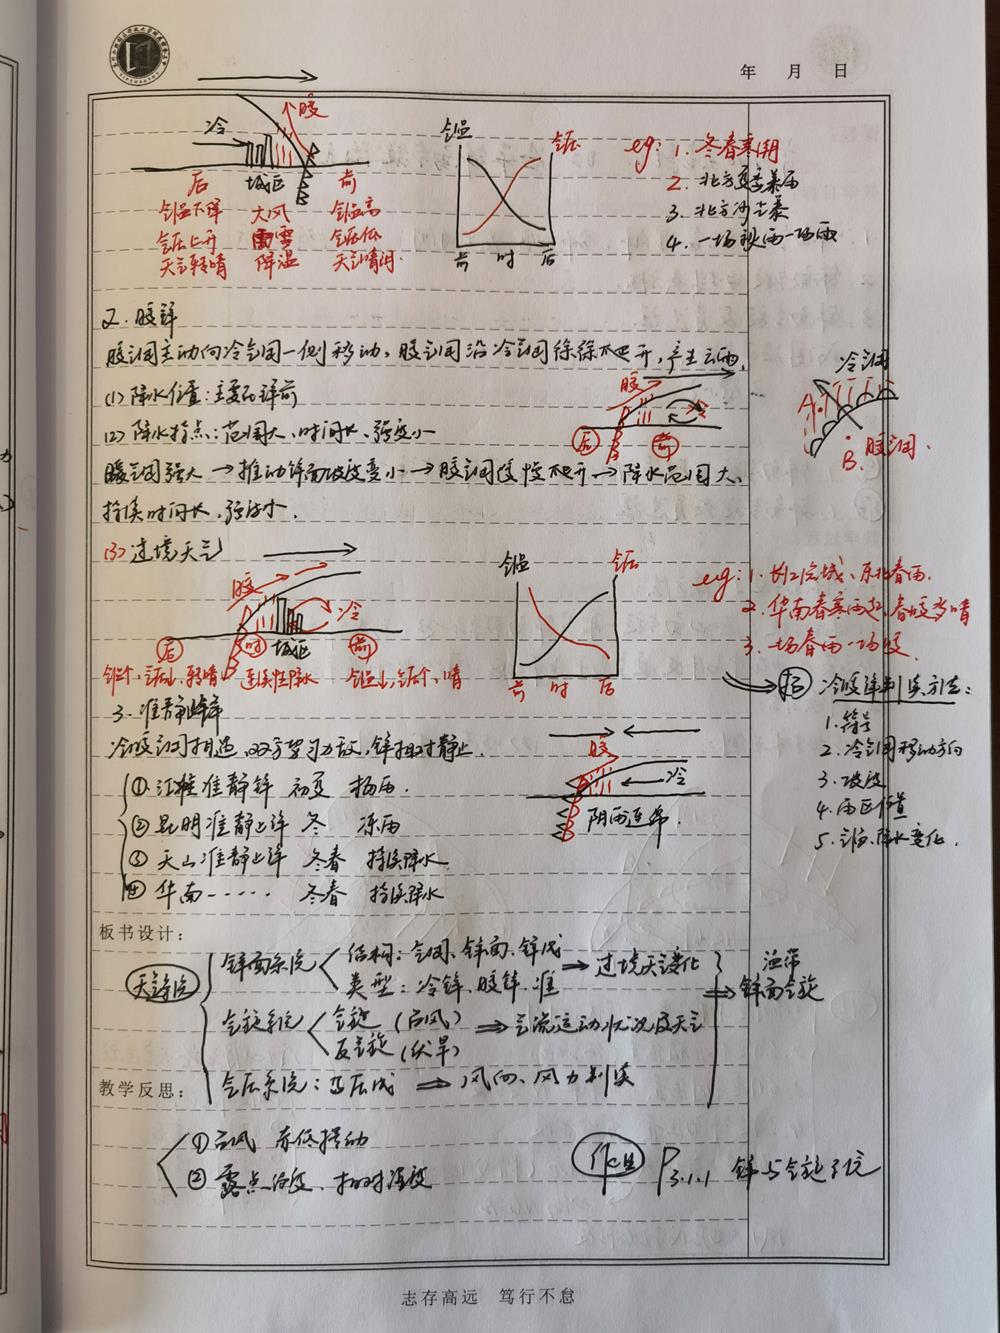 年 月 日
暖
冷
气温 气压
后 城区 前
前 时 后
气温下降 大风 气温高
气压上升 雨雪 气压低
天气转晴 降温 天气晴朗
eg: 1. 冬春寒潮
2. 北方夏季暴雨
3. 北方沙尘暴
4. 一场秋雨一场
2. 暖锋
暖气团主动向冷气团一侧移动, 暖气团沿冷气团徐徐爬升, 产生云雨.
(1) 降水位置: 主要在锋前
(2) 降水特点: 范围大、时间长、强度小
暖气团强大 → 推动锋面坡度变小 → 暖气团缓慢爬升 → 降水范围大、
持续时间长、强度小.
暖 冷
后 前
冷气团
A
B. 暖气团.
(3) 过境天气
暖 冷
后 时 城区 前
气温↑, 气压↓, 转晴 连续性降水 气温↓, 气压↑, 晴
气温 气压
前 时 后
eg: 1. 长江流域、东北春雨.
2. 华南春寒雨起, 春暖多晴
3. 一场春雨一场暖.
3. 准静止锋
冷暖气团相遇, 双方势均力敌, 锋相对静止.
① 江淮准静锋 初夏 梅雨.
② 昆明准静止锋 冬 冻雨
③ 天山准静止锋 冬春 持续降水
④ 华南…… 冬春 持续降水
暖 冷
阴雨连绵.
冷暖锋判读方法:
1. 符号
2. 冷气团移动方向
3. 坡度
4. 雨区位置
5. 气压、降水变化.
板书设计:
天气系统
锋面系统 结构: 气团、锋面、锋线 ⇒ 过境天气变化
类型: 冷锋、暖锋、准
气旋系统 气旋 (台风) ⇒ 气流运动状况及天气
反气旋 (伏旱)
气压系统: 高压线 ⇒ 风向、风力判读
温带
⇒ 锋面气旋
教学反思:
① 台风 东修扰动
② 露点温度、相对湿度
作业 P3.1.1 锋与气旋系统
志存高远 笃行不怠